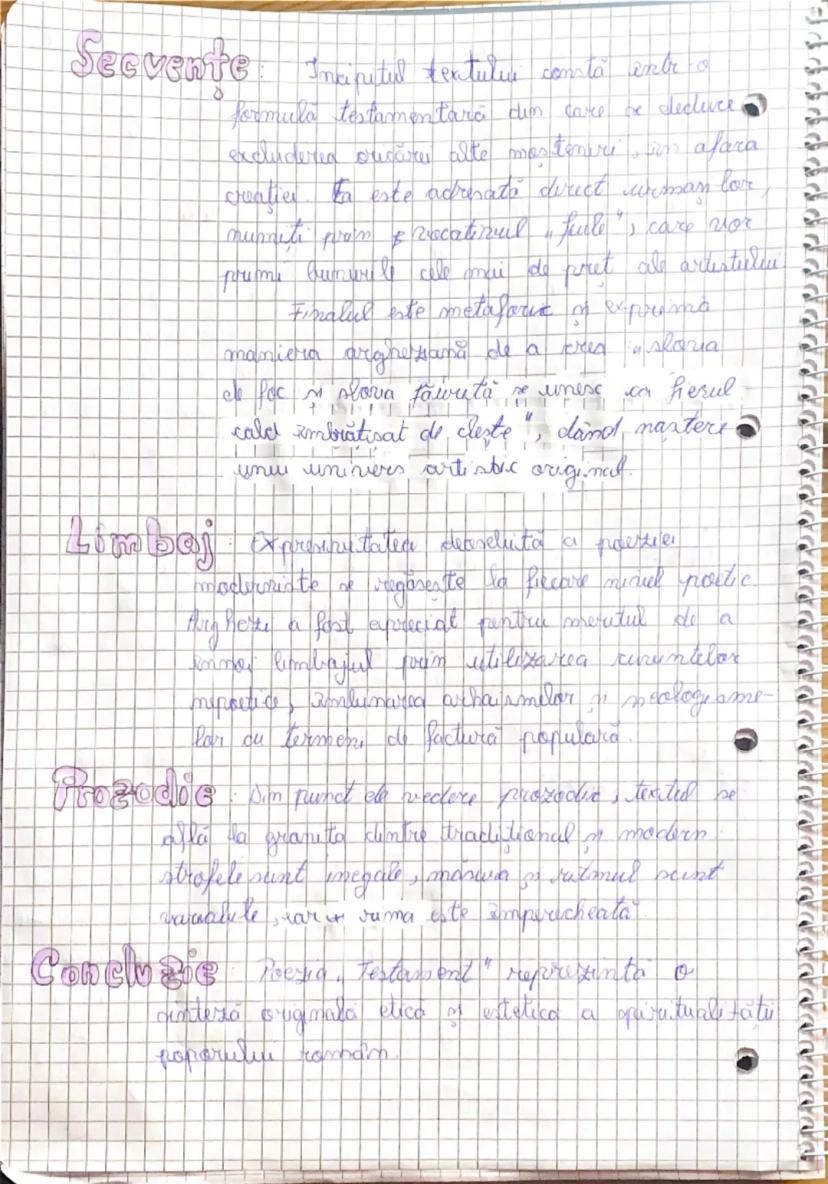 Secvențe: Incipitul textului constă într-o
formulă testamentară din care se deduce
excluderea oricărei alte moșteniri, în afara
creației. Ea este adresată direct urmașilor,
numiți prin vocativul „fiule", care vor
primi bunurile cele mai de preț ale artistului
Finalul este metaforic și exprimă
maniera argheziană de a crea „slova
de foc și slova făurită se unesc ca fierul
cald îmbrățișat de clește", dând naștere
unui univers artistic original.
Limbaj: Expresivitatea deosebită a poeziei
moderniste se regăsește la fiecare nivel poetic.
Arghezi a fost apreciat pentru meritul de a
înnoi limbajul prin utilizarea cuvintelor
nepoetice, îmbinarea arhaismelor și neologisme-
lor cu termeni de factură populară.
Prozodie: Din punct de vedere prozodic, textul se
află la granița dintre tradițional și modern
strofele sunt inegale, măsura și ritmul sunt
variabile, iar rima este împerecheată.
Concluzie: Poezia „Testament" reprezintă o
sinteză originală etică și estetică a spiritualității
poporului român.